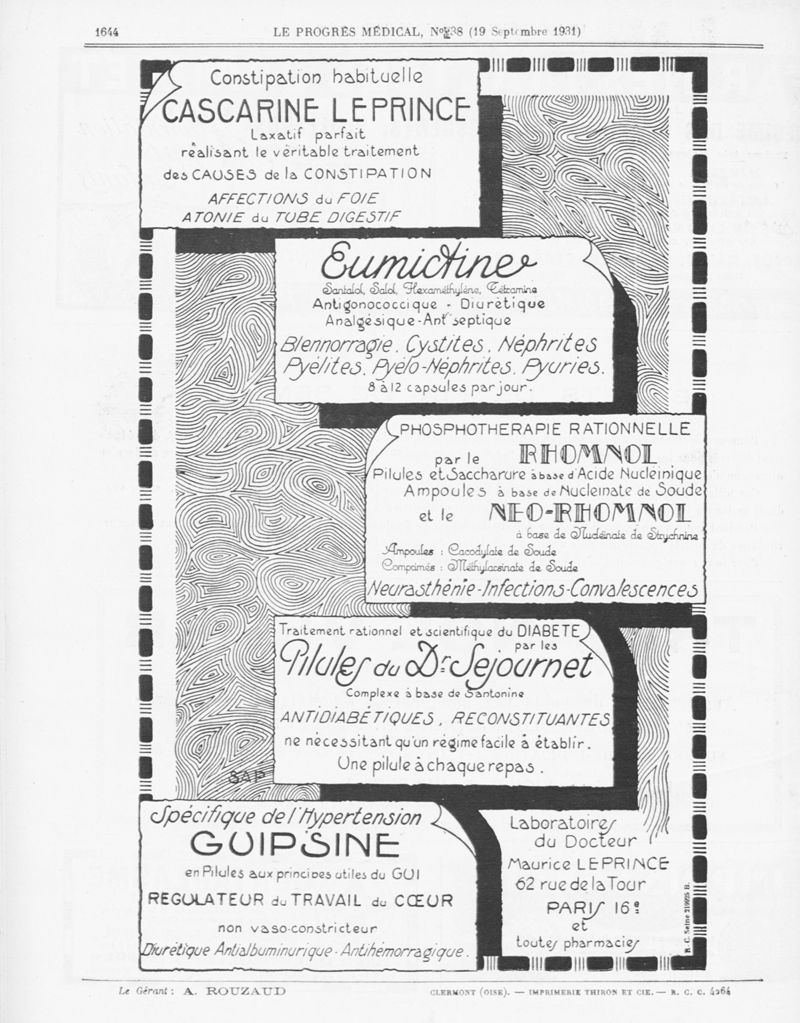 1644
LE PROGRÈS MÉDICAL, Nos 38 (19 Septembre 1931)
Constipation habituelle
CASCARINE LEPRINCE
Laxatif parfait
réalisant le véritable traitement
des CAUSES de la CONSTIPATION
AFFECTIONS du FOIE
ATONIE du TUBE DIGESTIF
Eumictine
Santalol, Salol, Hexaméthylène, Tétramine
Antigonococcique - Diurétique
Analgésique-Antiseptique
Blennorragie, Cystites, Néphrites
Pyélites, Pyélo-Néphrites, Pyuries.
8 à 12 capsules par jour.
PHOSPHOTHERAPIE RATIONNELLE
par le RHOMNOL
Pilules et Saccharure à base d'Acide Nucléinique
Ampoules à base de Nucleinate de Soude
et le NEO-RHOMNOL
à base de Nucléinate de Strychnine
Ampoules : Cacodylate de Soude
Comprimés : Méthylarsinate de Soude
Neurasthénie-Infections-Convalescences
Traitement rationnel et scientifique du DIABETE
par les
Pilules du Dr Sejournet
Complexe à base de Santonine
ANTIDIABÉTIQUES, RECONSTITUANTES
ne nécessitant qu'un régime facile à établir.
Une pilule à chaque repas.
SAP
Spécifique de l'Hypertension
GUIPSINE
en Pilules aux principes utiles du GUI
REGULATEUR du TRAVAIL du CŒUR
non vaso-constricteur
Diurétique Antialbuminurique-Antihémorragique.
Laboratoires
du Docteur
Maurice LEPRINCE
62 rue de la Tour
PARIS 16e
et
toutes pharmacies
R. C. Seine 219925 B.
Le Gérant : A. ROUZAUD
CLERMONT (OISE). — IMPRIMERIE THIRON ET CIE. — R. C. C. 4264